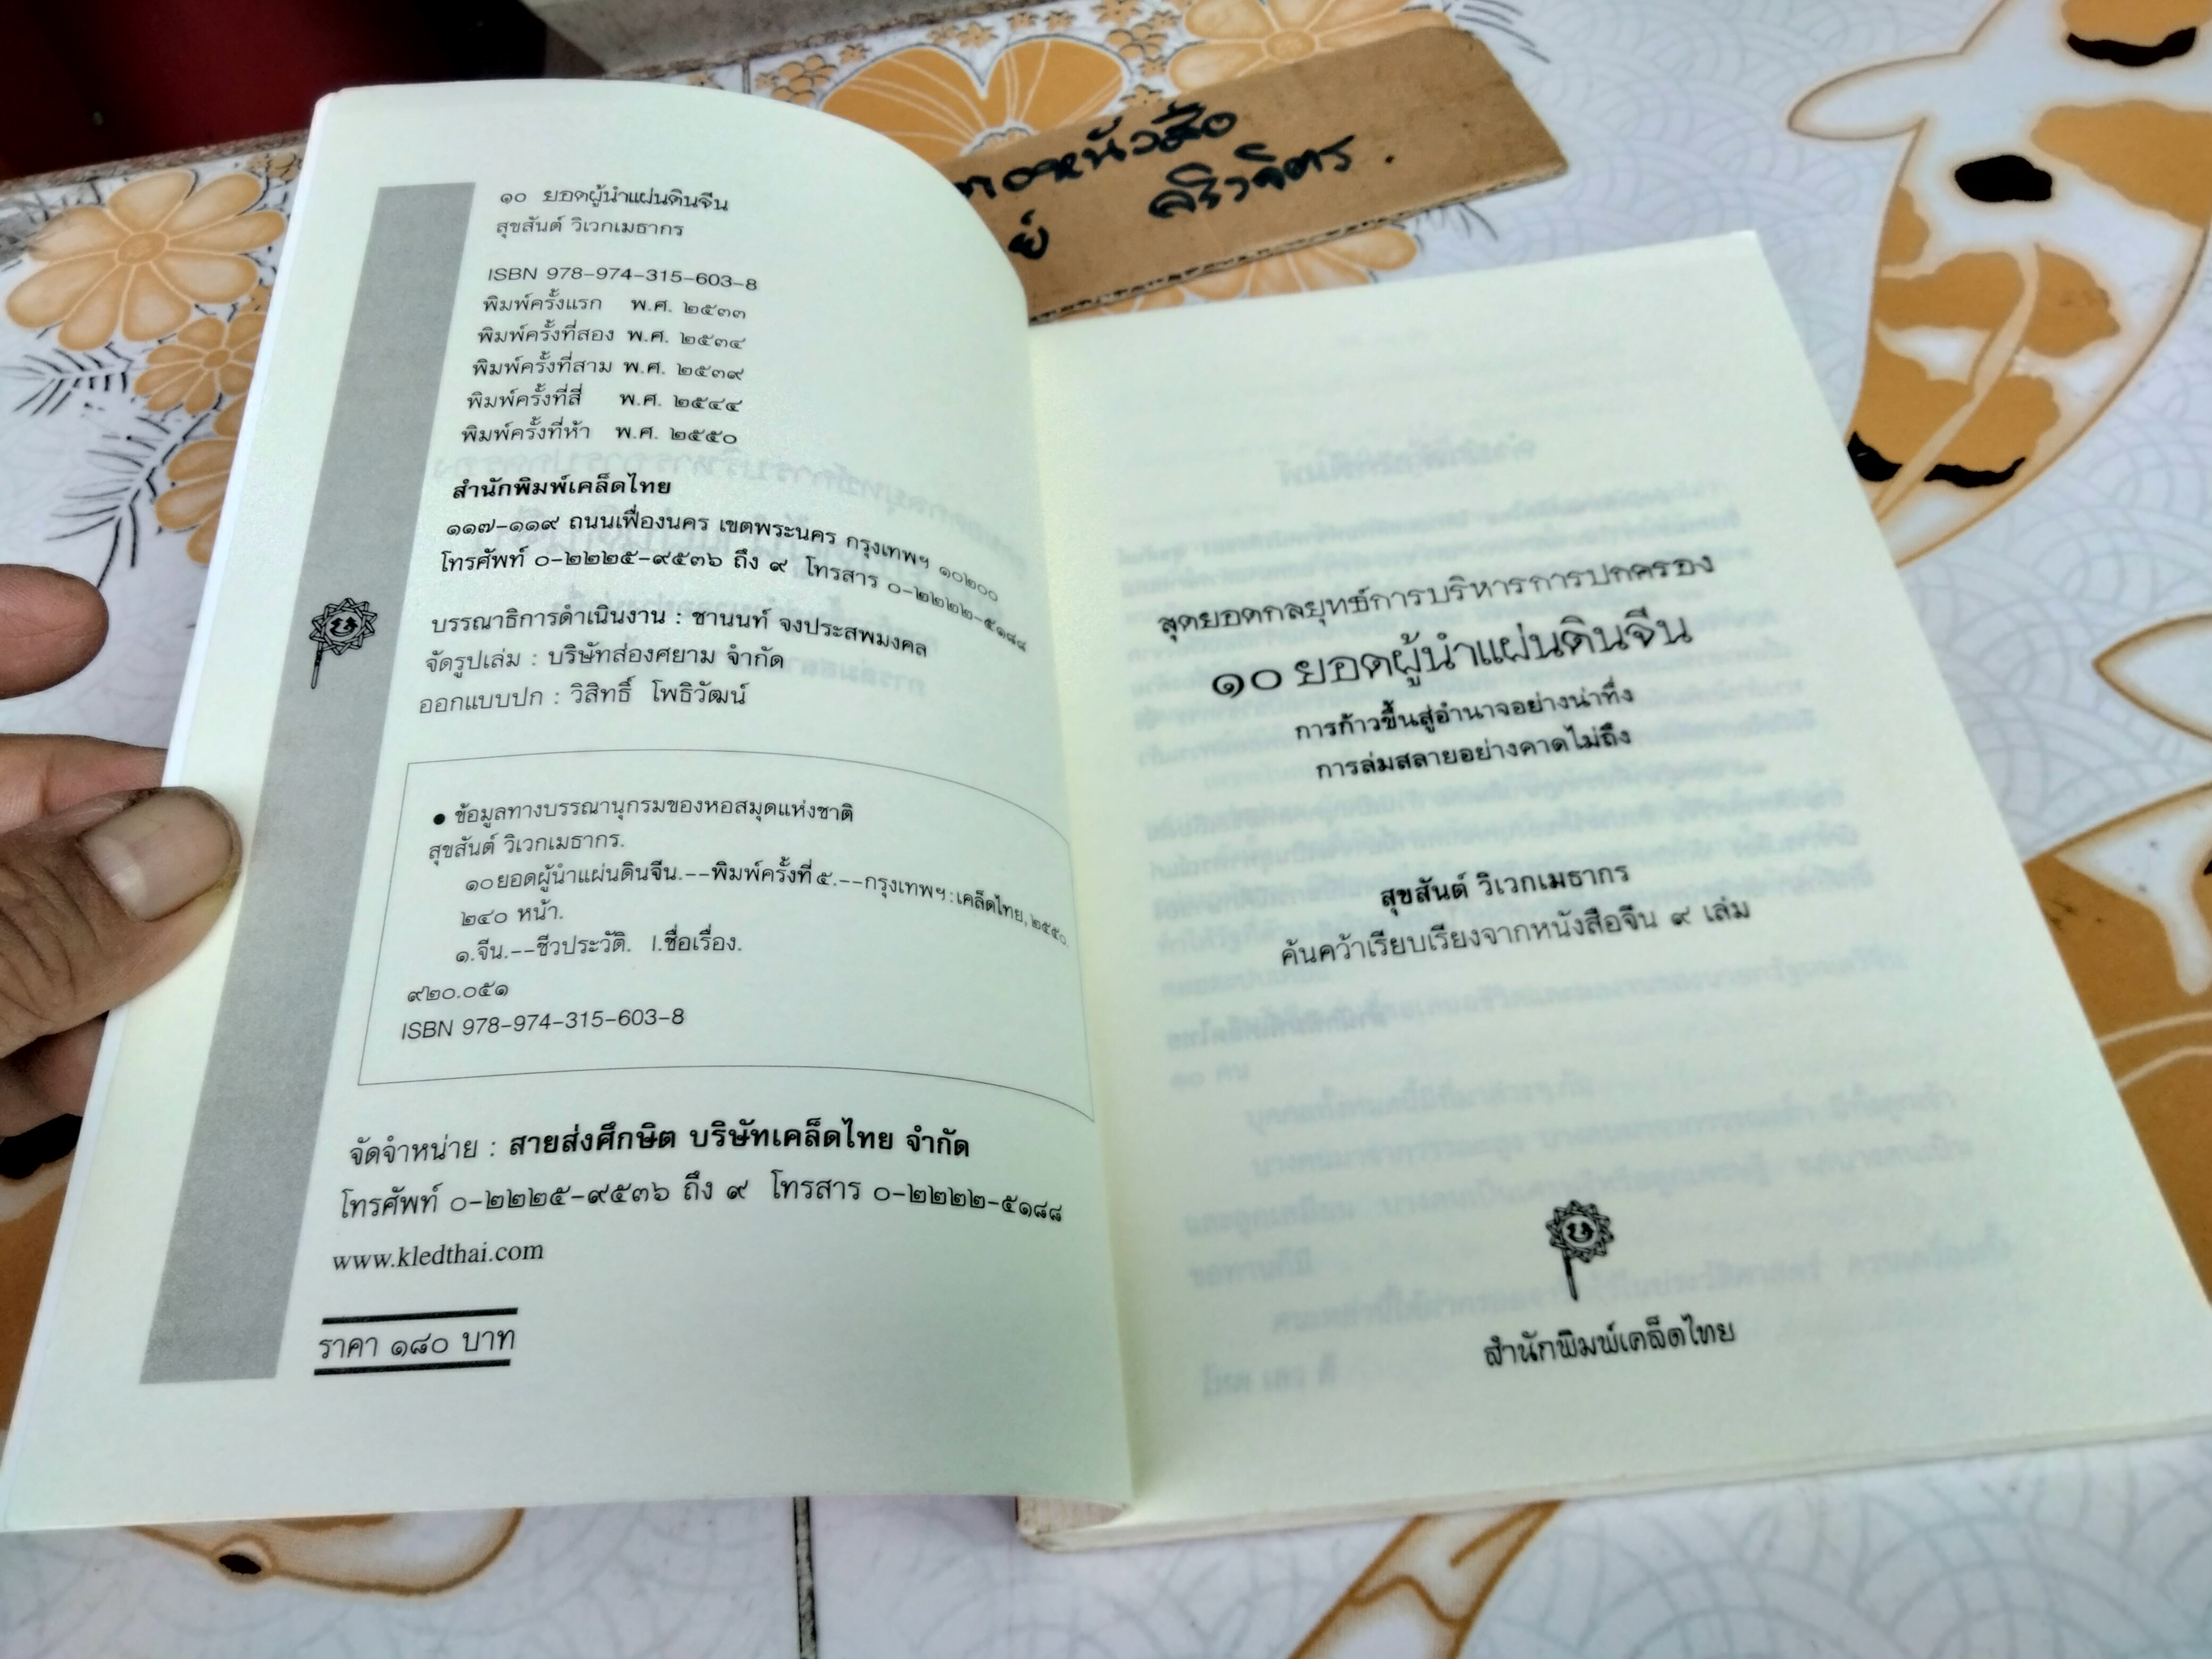 ๑๐ ยอดผู้นำแผ่นดินจีน
สุขสันต์ วิเวกเมธากร
ISBN 978-974-315-603-8
พิมพ์ครั้งแรก พ.ศ. ๒๕๓๓
พิมพ์ครั้งที่สอง พ.ศ. ๒๕๓๔
พิมพ์ครั้งที่สาม พ.ศ. ๒๕๓๙
พิมพ์ครั้งที่สี่ พ.ศ. ๒๕๔๔
พิมพ์ครั้งที่ห้า พ.ศ. ๒๕๕๐
สำนักพิมพ์เคล็ดไทย
๑๑๗-๑๑๙ ถนนเฟื่องนคร เขตพระนคร กรุงเทพฯ ๑๐๒๐๐
โทรศัพท์ ๐-๒๒๒๕-๙๕๓๖ ถึง ๙ โทรสาร ๐-๒๒๒๒-๕๑๘๘
บรรณาธิการดำเนินงาน : ชานนท์ จงประสพมงคล
จัดรูปเล่ม : บริษัทส่องศยาม จำกัด
ออกแบบปก : วิสิทธิ์ โพธิวัฒน์
● ข้อมูลทางบรรณานุกรมของหอสมุดแห่งชาติ
สุขสันต์ วิเวกเมธากร.
๑๐ยอดผู้นำแผ่นดินจีน.--พิมพ์ครั้งที่ ๕.--กรุงเทพฯ : เคล็ดไทย, ๒๕๕๐.
๒๔๐ หน้า.
๑.จีน.--ชีวประวัติ. I.ชื่อเรื่อง.
๙๒๐.๐๕๑
ISBN 978-974-315-603-8
จัดจำหน่าย : สายส่งศึกษิต บริษัทเคล็ดไทย จำกัด
โทรศัพท์ ๐-๒๒๒๕-๙๕๓๖ ถึง ๙ โทรสาร ๐-๒๒๒๒-๕๑๘๘
www.kledthai.com
ราคา ๑๘๐ บาท
สุดยอดกลยุทธ์การบริหารการปกครอง
๑๐ ยอดผู้นำแผ่นดินจีน
การก้าวขึ้นสู่อำนาจอย่างน่าทึ่ง
การล่มสลายอย่างคาดไม่ถึง
สุขสันต์ วิเวกเมธากร
ค้นคว้าเรียบเรียงจากหนังสือจีน ๙ เล่ม
สำนักพิมพ์เคล็ดไทย